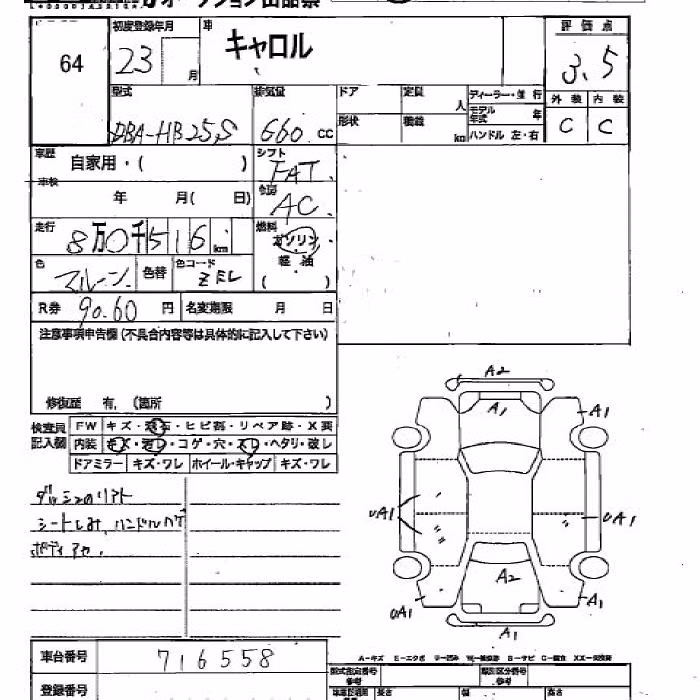 オークション出品票
64 初度登録年月 車 キャロル 評価点
23 月 3.5
型式 排気量 ドア 定員 人 ディーラー・並行 外装 内装
DBA-HB25S 660 cc 形状 積載 km モデル年式 年 C C
ハンドル 左・右
車歴 自家用・( ) シフト FAT
車検 年 月( 日) 冷房 AC
走行 8万0千516km 燃料 ガソリン
色 マルーン 色替 色コード ZEL 軽油
( )
R券 90.60 円 名変期限 月 日
注意事項申告欄(不具合内容等は具体的に記入して下さい)
修復歴 有, (箇所 )
検査員記入欄 FW キズ・飛石・ヒビ割・リペア跡・X要
内装 キズ・・コゲ・穴・スレ・ヘタリ・改し
ドアミラー キズ・ワレ ホイール・キャップ キズ・ワレ
シートしみ、ハンドルハゲ
A2
A1
A1
UA1
UA1
A2
UA1
A1
A1
車台番号 716558
A-キズ E-エクボ
登録番号 型式指定番号 参考 類別区分番号 参考
長さ 幅 高さ